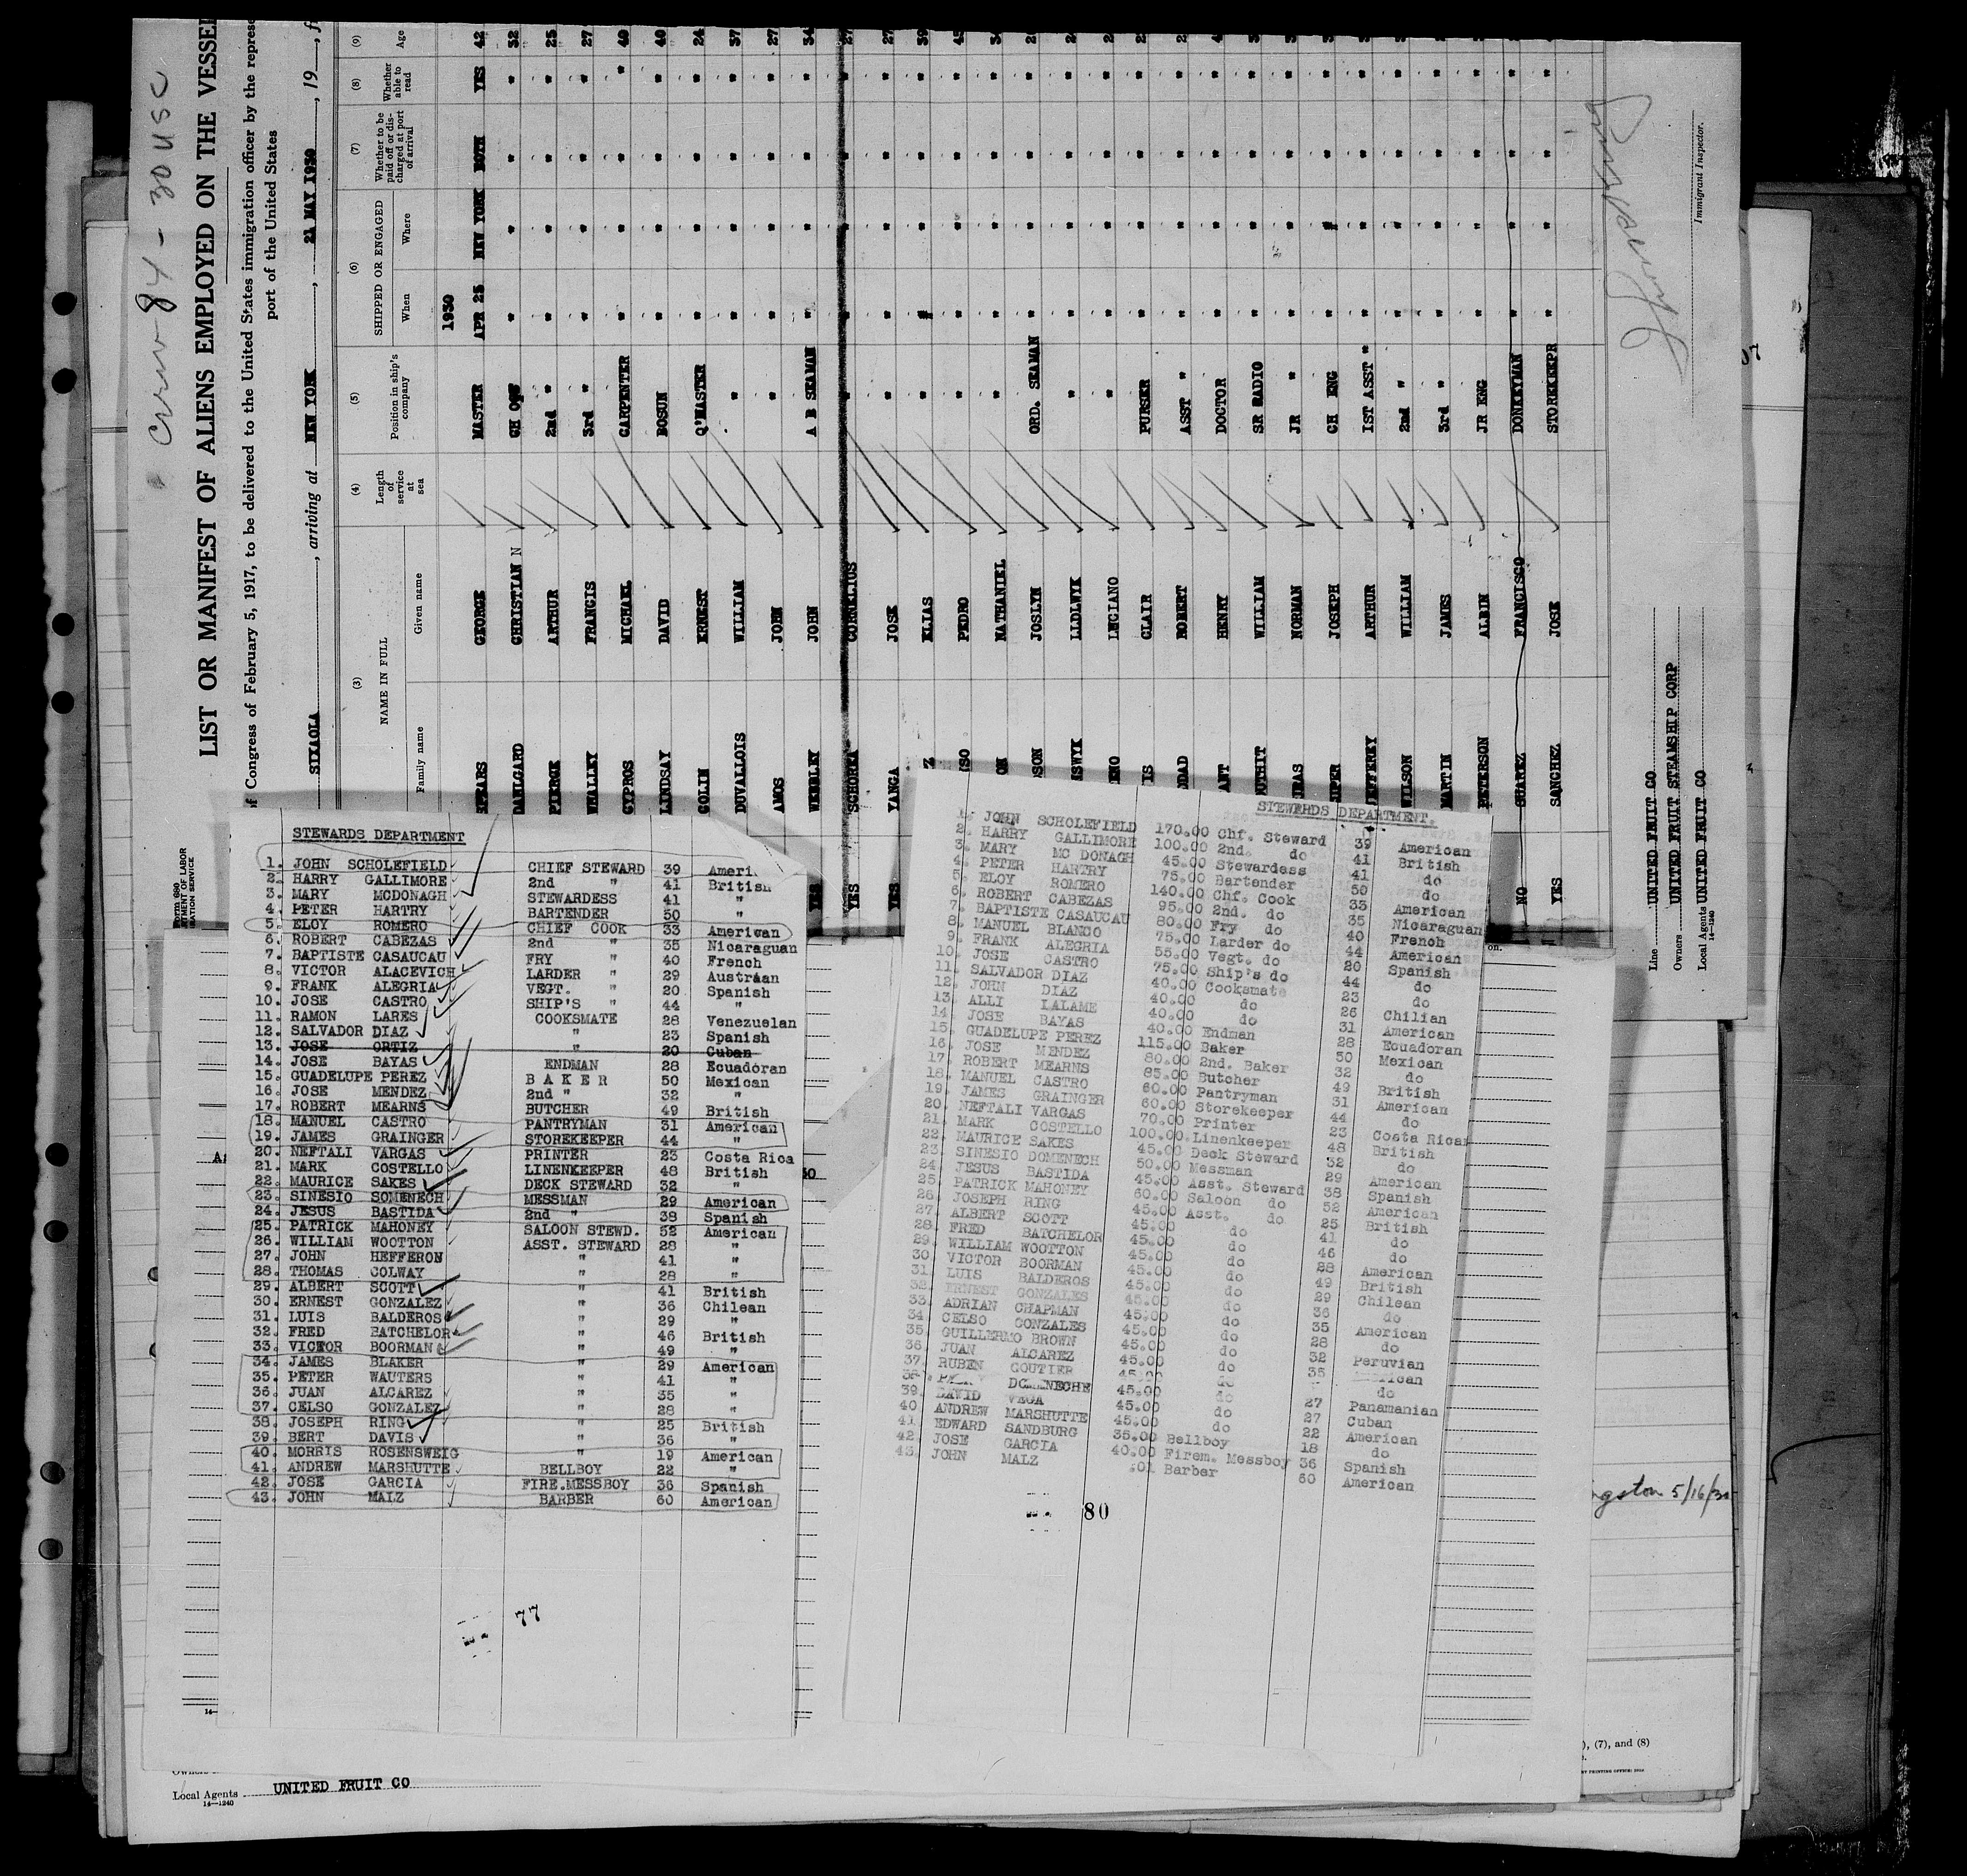 Crew 84 - 30 USC
LIST OR MANIFEST OF ALIENS EMPLOYED ON THE VESSEL
of Congress of February 5, 1917, to be delivered to the United States immigration officer by the repres
port of the United States
SIXAOLA, arriving at NEW YORK, 21 MAY 1930, 19
(3) (4) (5) (6) (7) (8) (9)
NAME IN FULL Length of service at sea Position in ship's company SHIPPED OR ENGAGED Whether to be paid off or discharged at port of arrival Whether able to read Age
Family name Given name When Where
1930
SPEARS GEORGE MASTER APR 25 NEW YORK BOTH YES 42
DAHLGARD CHRISTIAN N CH OFF " " " " 32
PIERCE ARTHUR 2nd " " " " " 25
WHALLEY FRANCIS 3rd " " " " " 27
CYPROS MICHAEL CARPENTER " " " " 40
LINDSAY DAVID BOSUN " " " " 40
COLIN ERNEST Q'MASTER " " " " 24
DUVALLOIS WILLIAM " " " " " 37
AMOS JOHN " " " " " 27
WEEDLEY JOHN A B SEAMAN " " " " 34
SCHORKA CORNELIUS " " " " " 27
YANGA JOSE " " " " " 27
ELIAS " " " " " 39
PEDRO " " " " "
NATHANIEL " " " " "
JOSLYN ORD. SEAMAN " " " "
LLDLWIK " " " " "
LUCIANO " " " " "
CLAIR PURSER " " " "
ROBERT ASST " " " " "
HENRY DOCTOR " " " "
WILLIAM SR RADIO " " " "
NORMAN JR " " " " "
JOSEPH CH ENG " " " "
JEFFEREY ARTHUR 1ST ASST " " " " "
WILSON WILLIAM 2nd " " " " "
MARTIN JAMES 3rd " " " " "
PETERSON ALBIN JR ENG " " " "
SUAREZ FRANCISCO DONKEYMAN " " " "
SANCHEZ JOSE STOREKEEPR " " " "
YES
YES
YES
NO
YES
Immigrant Inspector.
Line UNITED FRUIT CO
Owners UNITED FRUIT STEAMSHIP CORP
Local Agents UNITED FRUIT CO
14—1240
Form 680
MENT OF LABOR
RATION SERVICE
STEWARDS DEPARTMENT
1. JOHN SCHOLEFIELD CHIEF STEWARD 39 Ameri
2. HARRY GALLIMORE 2nd " 41 British
3. MARY MCDONAGH STEWARDESS 41 "
4. PETER HARTRY BARTENDER 50 "
5. ELOY ROMERO CHIEF COOK 33 American
6. ROBERT CABEZAS 2nd " 35 Nicaraguan
7. BAPTISTE CASAUCAU FRY " 40 French
8. VICTOR ALACEVICH LARDER " 29 Austrian
9. FRANK ALEGRIA VEGT. " 20 Spanish
10. JOSE CASTRO SHIP'S " 44 "
11. RAMON LARES COOKSMATE 28 Venezuelan
12. SALVADOR DIAZ " 23 Spanish
13. JOSE ORTIZ " 20 Cuban
14. JOSE BAYAS ENDMAN 28 Ecuadoran
15. GUADELUPE PEREZ B A K E R 50 Mexican
16. JOSE MENDEZ 2nd " 32 "
17. ROBERT MEARNS BUTCHER 49 British
18. MANUEL CASTRO PANTRYMAN 31 American
19. JAMES GRAINGER STOREKEEPER 44 "
20. NEFTALI VARGAS PRINTER 23 Costa Rica
21. MARK COSTELLO LINENKEEPER 48 British
22. MAURICE SAKES DECK STEWARD 32 "
23. SINESIO SOMENECH MESSMAN 29 American
24. JESUS BASTIDA 2nd " 38 Spanish
25. PATRICK MAHONEY SALOON STEWD. 52 American
26. WILLIAM WOOTTON ASST. STEWARD 28 "
27. JOHN HEFFERON " 41 "
28. THOMAS COLWAY " 28 "
29. ALBERT SCOTT " 41 British
30. ERNEST GONZALEZ " 36 Chilean
31. LUIS BALDEROS " 29 "
32. FRED BATCHELOR " 46 British
33. VICTOR BOORMAN " 49 "
34. JAMES BLAKER " 29 American
35. PETER WAUTERS " 41 "
36. JUAN ALCAREZ " 35 "
37. CELSO GONZALEZ " 28 "
38. JOSEPH RING " 25 British
39. BERT DAVIS " 36 "
40. MORRIS ROSENSWEIG " 19 American
41. ANDREW MARSHUTTE BELLBOY 22 "
42. JOSE GARCIA FIRE.MESSBOY 36 Spanish
43. JOHN MALZ BARBER 60 American
77
STEWARDS DEPARTMENT.
1. JOHN SCHOLEFIELD 170.00 Chf. Steward 39 American
2. HARRY GALLIMORE 100.00 2nd. do 41 British
3. MARY MC DONAGH 45.00 Stewardess 41 do
4. PETER HARTRY 75.00 Bartender 50 do
5. ELOY ROMERO 140.00 Chf. Cook 33 American
6. ROBERT CABEZAS 95.00 2nd. do 35 Nicaraguan
7. BAPTISTE CASAUCAU 80.00 Fry do 40 French
8. MANUEL BLANCO 75.00 Larder do 44 American
9. FRANK ALEGRIA 55.00 Vegt. do 20 Spanish
10. JOSE CASTRO 75.00 Ship's do 44 do
11. SALVADOR DIAZ 40.00 Cooksmate 23 do
12. JOHN DIAZ 40.00 do 26 Chilian
13. ALLI LALAME 40.00 do 31 American
14. JOSE BAYAS 40.00 Endman 28 Ecuadoran
15. GUADELUPE PEREZ 115.00 Baker 50 Mexican
16. JOSE MENDEZ 80.00 2nd. Baker 32 do
17. ROBERT MEARNS 85.00 Butcher 49 British
18. MANUEL CASTRO 60.00 Pantryman 31 American
19. JAMES GRAINGER 60.00 Storekeeper 44 do
20. NEFTALI VARGAS 70.00 Printer 23 Costa Rican
21. MARK COSTELLO 100.00 Linenkeeper 48 British
22. MAURICE SAKES 45.00 Deck Steward 32 do
23. SINESIO DOMENECH 50.00 Messman 29 American
24. JESUS BASTIDA 45.00 Asst. Steward 38 Spanish
25. PATRICK MAHONEY 60.00 Saloon do 52 American
26. JOSEPH RING 45.00 Asst. do 25 British
27. ALBERT SCOTT 45.00 do 41 do
28. FRED BATCHELOR 45.00 do 46 do
29. WILLIAM WOOTTON 45.00 do 28 American
30. VICTOR BOORMAN 45.00 do 49 British
31. LUIS BALDEROS 45.00 do 29 Chilean
32. ERNEST GONZALES 45.00 do 36 do
33. ADRIAN CHAPMAN 45.00 do 35 American
34 CELSO GONZALES 45.00 do 28 do
35. GUILLERMO BROWN 45.00 do 32 Peruvian
36. JUAN ALCAREZ 45.00 do 35 American
37. RUBEN GOUTIER 45.00 do do
38. DOMENECHE 45.00 do 27 Panamanian
39. DAVID VEGA 45.00 do 27 Cuban
40. ANDREW MARSHUTTE 45.00 do 22 American
41. EDWARD SANDBURG 35.00 Bellboy 18 do
42. JOSE GARCIA 40.00 Firem. Messboy 36 Spanish
43. JOHN MALZ .01 Barber 60 American
80
ngston 5/16/30
), (7), and (8)
Local Agents UNITED FRUIT CO
14—1240